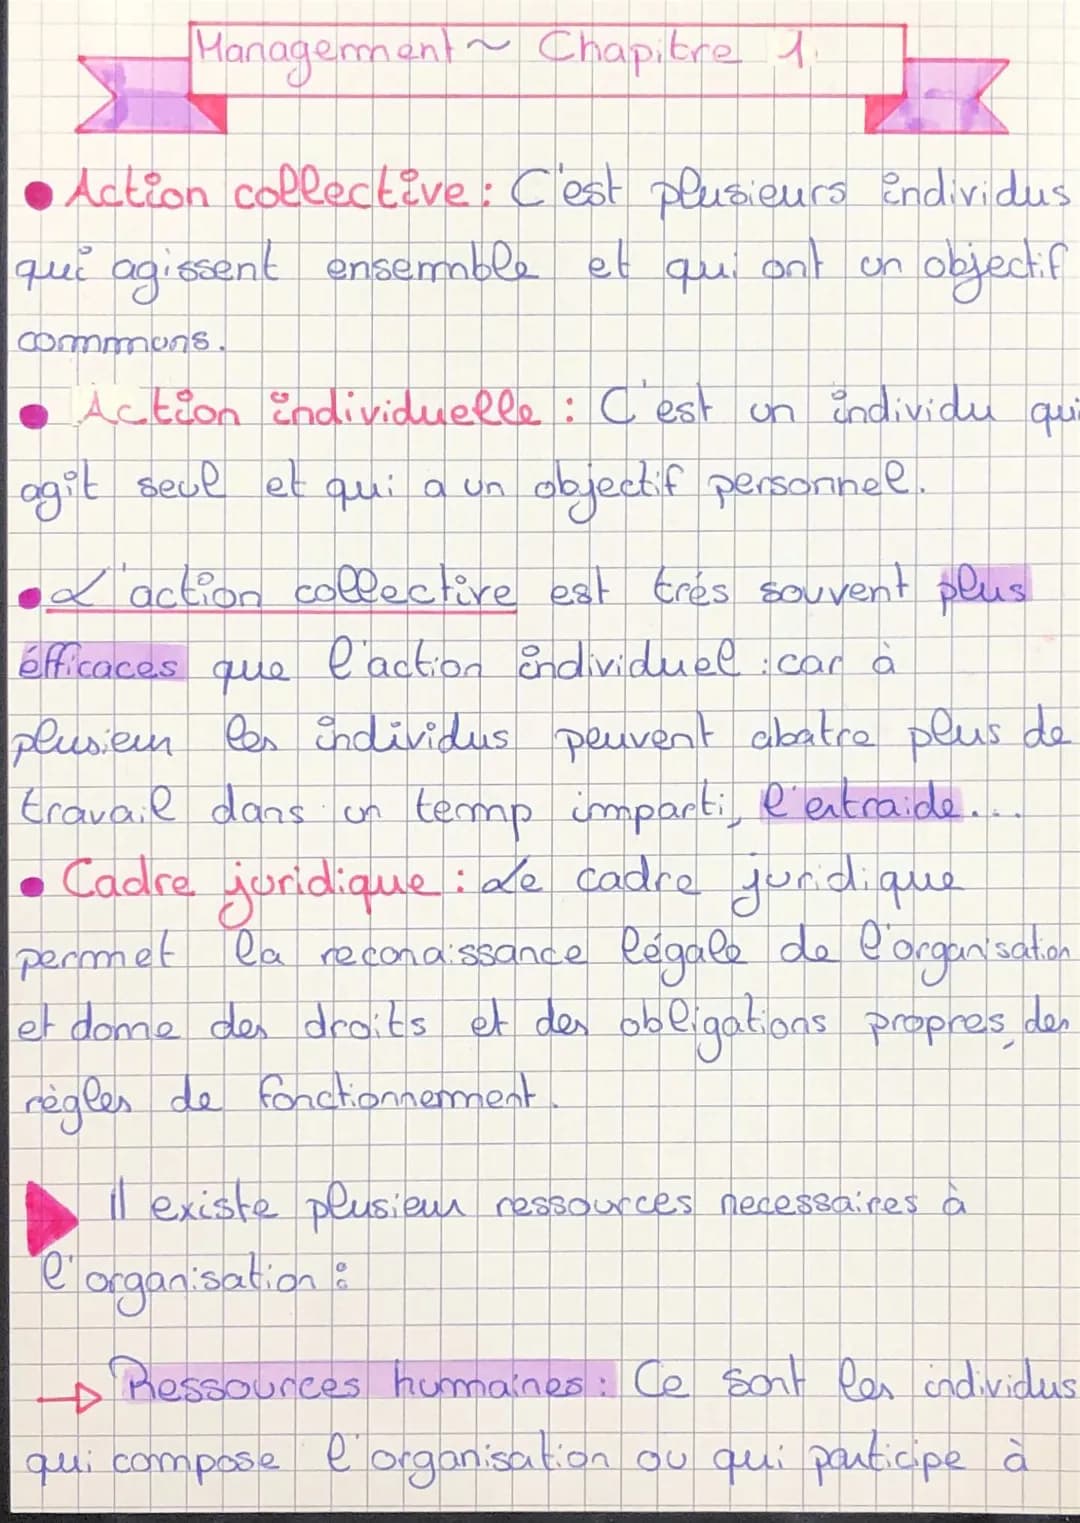 Management ~ Chapitre 1.
Action collective : C'est plusieurs individus
qui agissent ensemble et qui ont un objectif
commmuns.
Action individuelle : C'est un individu qui
agit seul et qui a un objectif personnel.
L'action collective est très souvent plus
éfficaces que l'action individuel : car à
plusieur les individus peuvent abatre plus de
travail dans un temp imparti, l'entraide...
Cadre juridique : Le cadre juridique
permet la reconaissance légale de l'organisation
et donne des droits et des obligations propres, des
règles de fonctionnement.
Il existe plusieur ressources necessaires à
l'organisation :
Ressources humaines : Ce sont les individus
qui compose l'organisation ou qui participe à